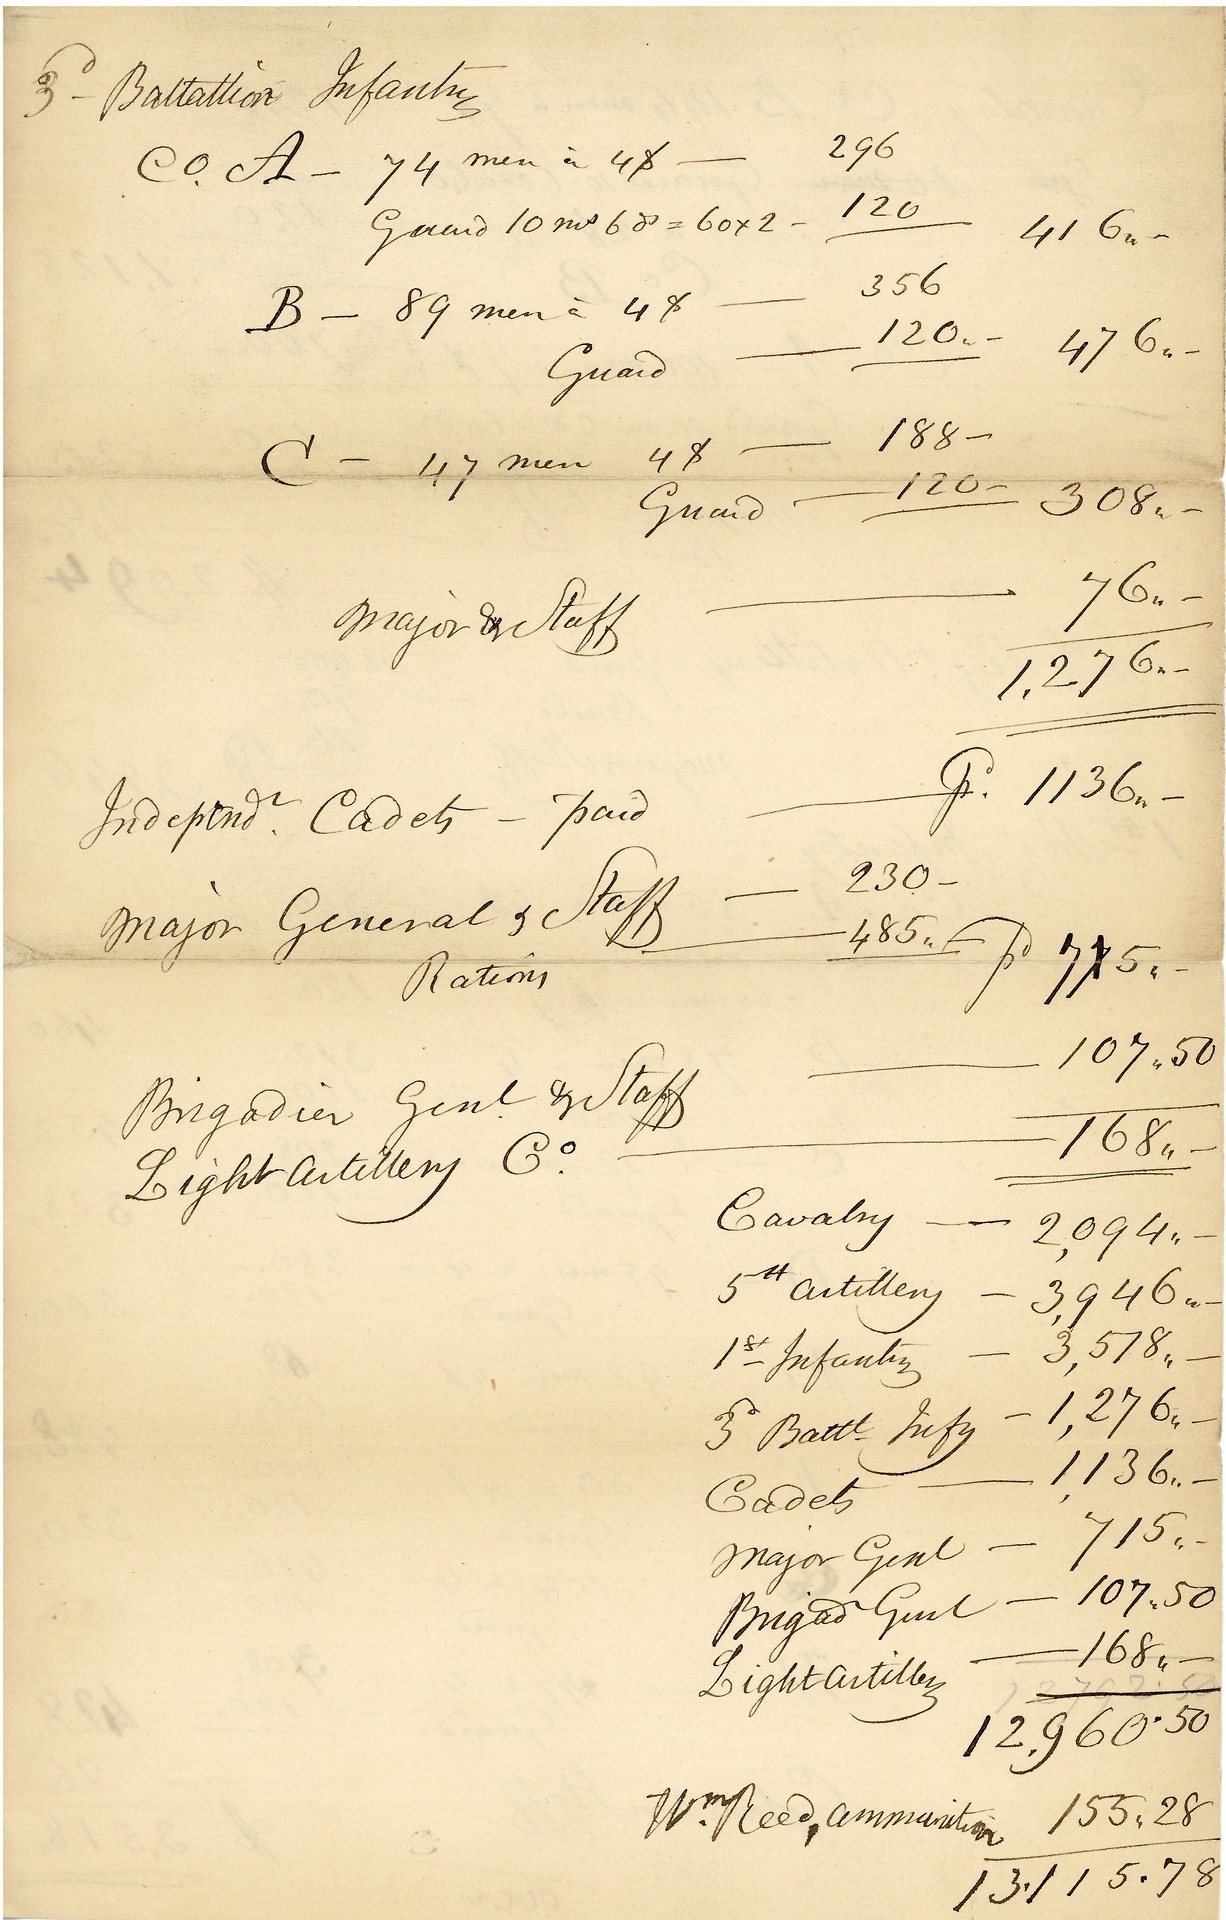 3d Battallion Infantry
Co. A – 74 men à 4$ — 296
Guard 10 ms 6$ = 60x2 – 120 416„-
B – 89 men à 4$ — 356
Guard — 120„- 476„-
C – 47 men 4$ — 188-
Guard — 120- 308„-
Major & Staff — 76„-
1,276„-
Independt. Cadets – paid — pd. 1136„-
Major General & Staff — 230-
Rations — 485„- pd 715„-
Brigadier Genl & Staff — 107„50
Light Artillery Co. — 168„-
Cavalry — 2,094„-
5th Artillery – 3,946„-
1st Infantry – 3,518„-
3d Battl Infy – 1,276„-
Cadets — 1,136„-
Major Genl — 715„-
Brigad Genl — 107„50
Light Artillery — 168„-
12,960.50
Wm. Reed, ammunition 155„28
13.115.78